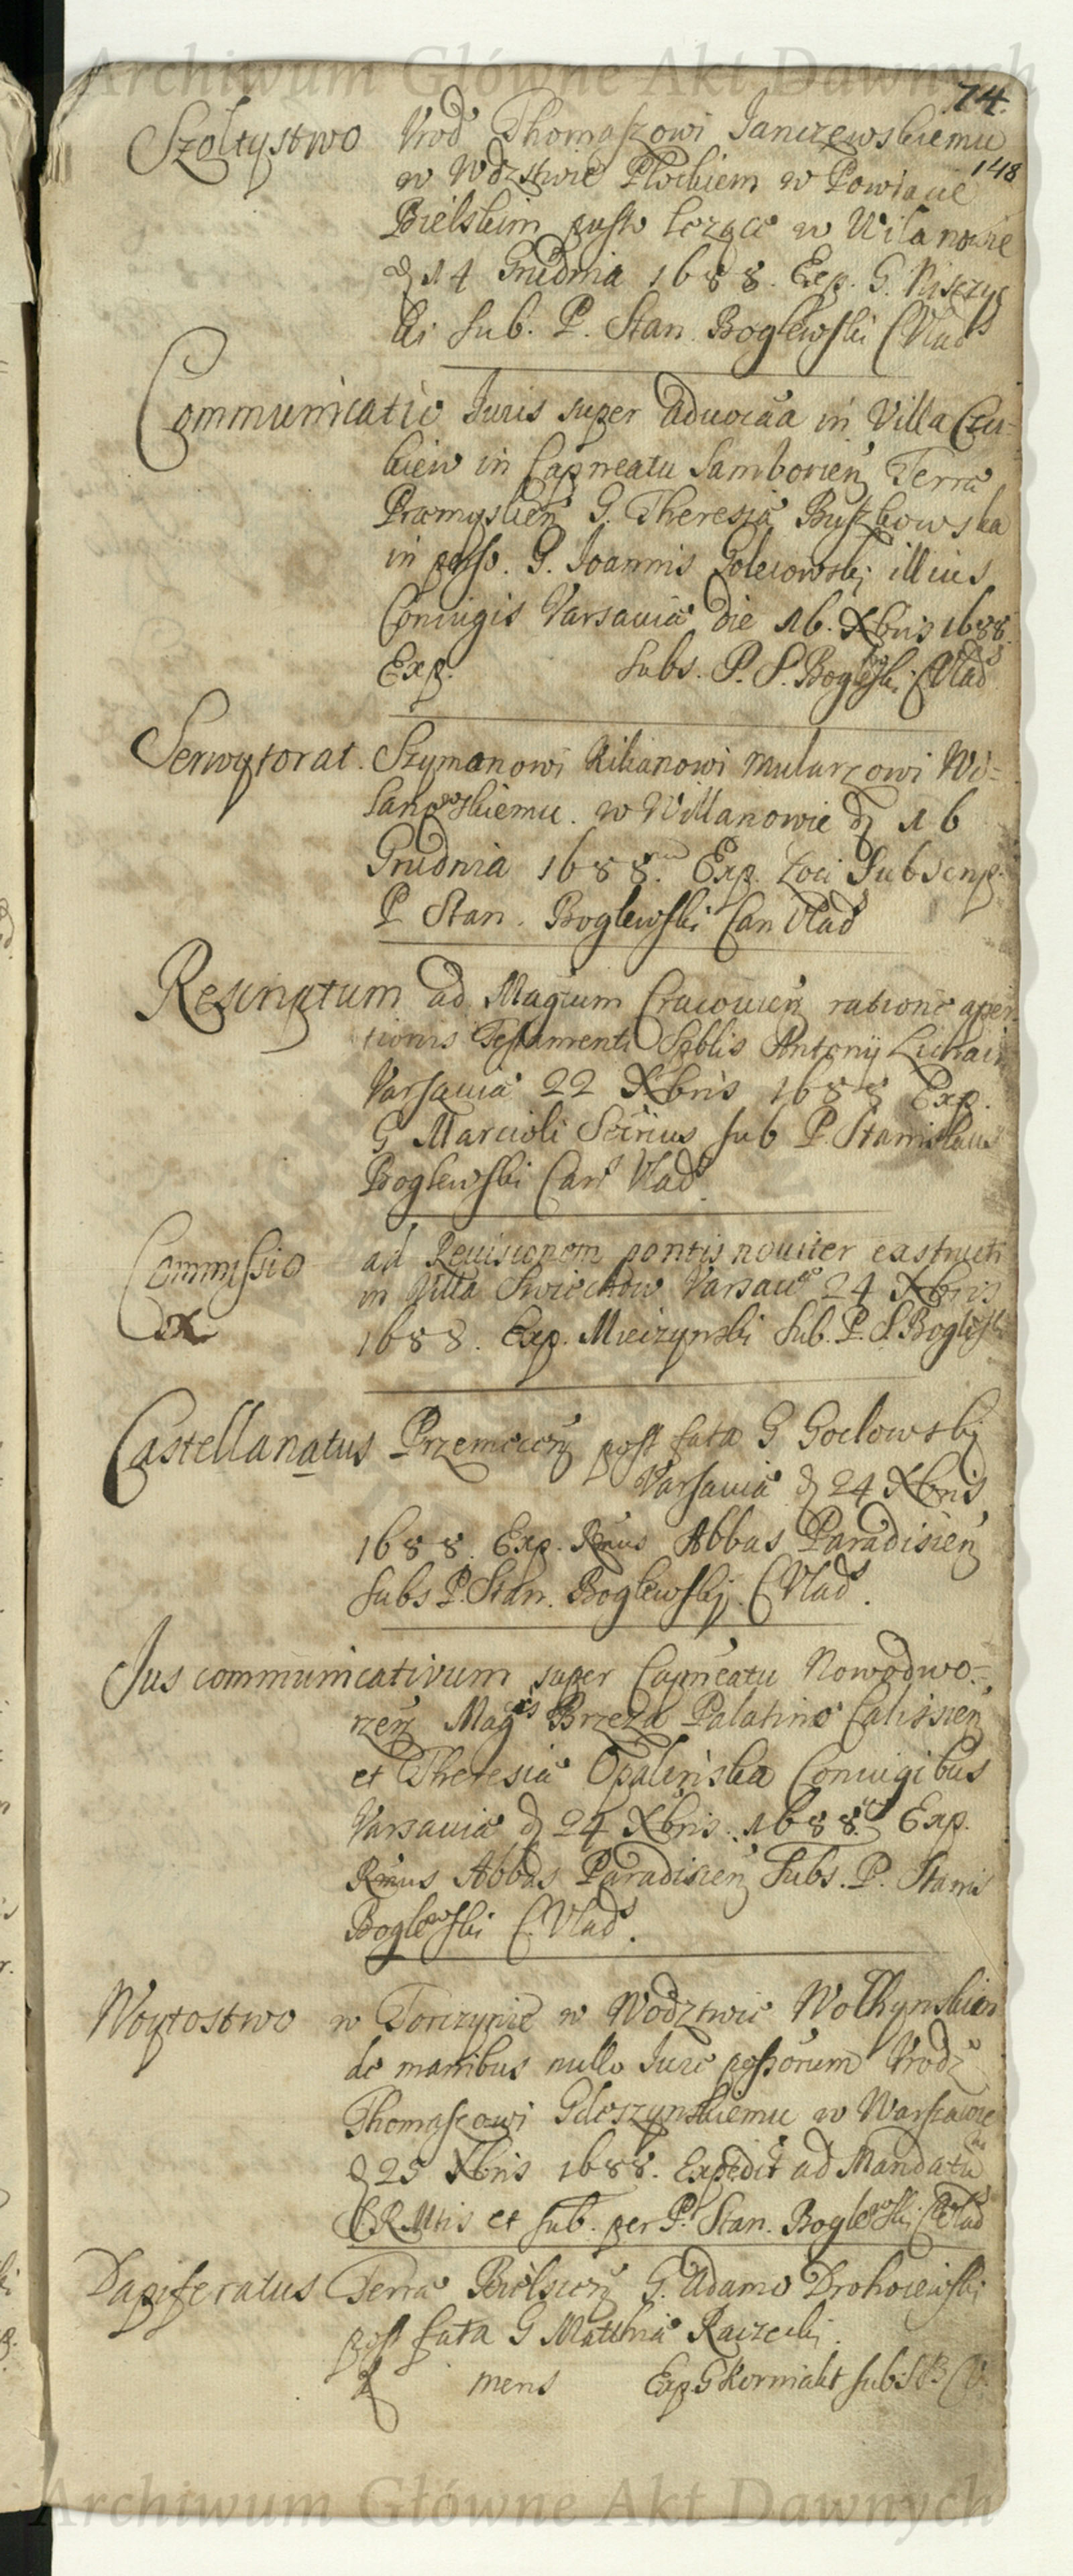 Archiwum Główne Akt Dawnych
74.
148
Szołtystwo Urod Thomaszowi Janczewskiemu
w Wdztwie Płockiem w Powiacie
Bielskim puste leżące w Wilanowie
d 14 Grudnia 1688. Exp. G. Niszczyc
ki sub. P. Stan. Boglewski C Vlad
Communicatio Juris super advocatia in Villa Czu-
kiew in Capneatu Samborien Terra
Præmyslien G. Theresiæ Buszkowska
in perso. G. Joannis Goleiowskj illius
Coniugis Varsaviæ die 16. Xbris 1688
Exp. subs. P. S. Boglewski C Vlad
Serwytorat. Szymanowi Kilianowi mularzowi Wi=
lanowskiemu. w Willanowie d 16
Grudnia 1688. Exp. Loci Subscrip.
P Stan. Boglewski Can Vlad
Rescriptum ad Magtum Cracovien ratione aper-
tionis Testamenti Spblis Antonij
Varsaviæ 22 Xbris 1688 Exp.
G Marcioli Scirius sub P. Stanislaus
Boglewski Can Vlad.
Commissio ad Revisionem pontis noviter exstructi
in Villa Swiechow Varsaw 24 Xbris
1688. Exp. Mieizynski Sub. P. S. Boglewski
Castellanatus Przemecen post fata G Goclowskj
Varsaviæ d 24 Xbris
1688. Exp. Rmus Abbas Paradisien
subs P. Stan. Boglewskj. C Vlad.
Jus communicativum super Capneatu Nowodwo-
rzen Magcis Brzeza Palatino Calissien
et Theresiæ Opalinska Coniugibus
Varsaviæ d 24 Xbris. 1688. Exp.
Rmus Abbas Paradisien Subs. P. Stanis
Boglewski C. Vlad.
Woytostwo w Torczynie w Wodztwie Wolhynskiem
de manibus nullo Jure possorum Vrodz
Thomaszowi Gdeszynskiemu w Warszawie
d 25 Xbris 1688. Expedit ad Mandatum
S.R.Mtis et sub. per P. Stan. Boglewski C Vlad
Dapiferatus Terræ Bielscien G. Adamo Drohoiewski
post fata G Matthiæ Raczcki.
d mens Exp G Korniakt subs
Archiwum Główne Akt Dawnych